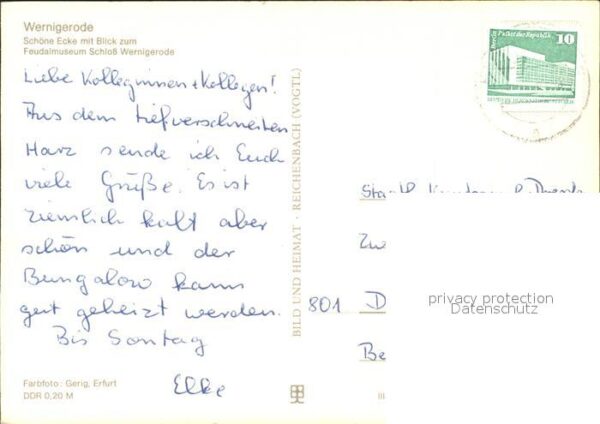 Wernigerode
Schöne Ecke mit Blick zum
Feudalmuseum Schloß Wernigerode
Liebe Kolleginnen + Kollegen!
Aus dem tiefverschneiten
Harz sende ich Euch
viele Grüße. Es ist
ziemlich kalt aber
schön und der
Bungalow kann
gut geheizt werden.
Bis Sonntag
Elke
Farbfoto: Gerig, Erfurt
DDR 0,20 M
BILD UND HEIMAT · REICHENBACH (VOGTL)
Berlin Palast der Republik
10
801 D
privacy protection
Datenschutz